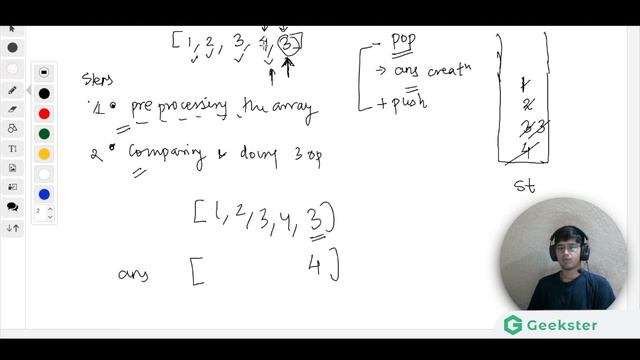 [1, 2, 3, 4, 3]
- pop
→ ans creatn
+ push
Steps
1• pre processing the array
2• Comparing & doing 3 op
1
2
3 3
4
st
[1, 2, 3, 4, 3]
ans [ 4 ]
2
Geekster